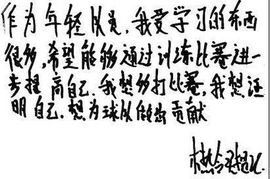 作为年轻队员，我要学习的东西
很多，希望能够通过训练比赛进一
步提高自己，我想多打比赛，我想证
明自己，想为球队做出贡献